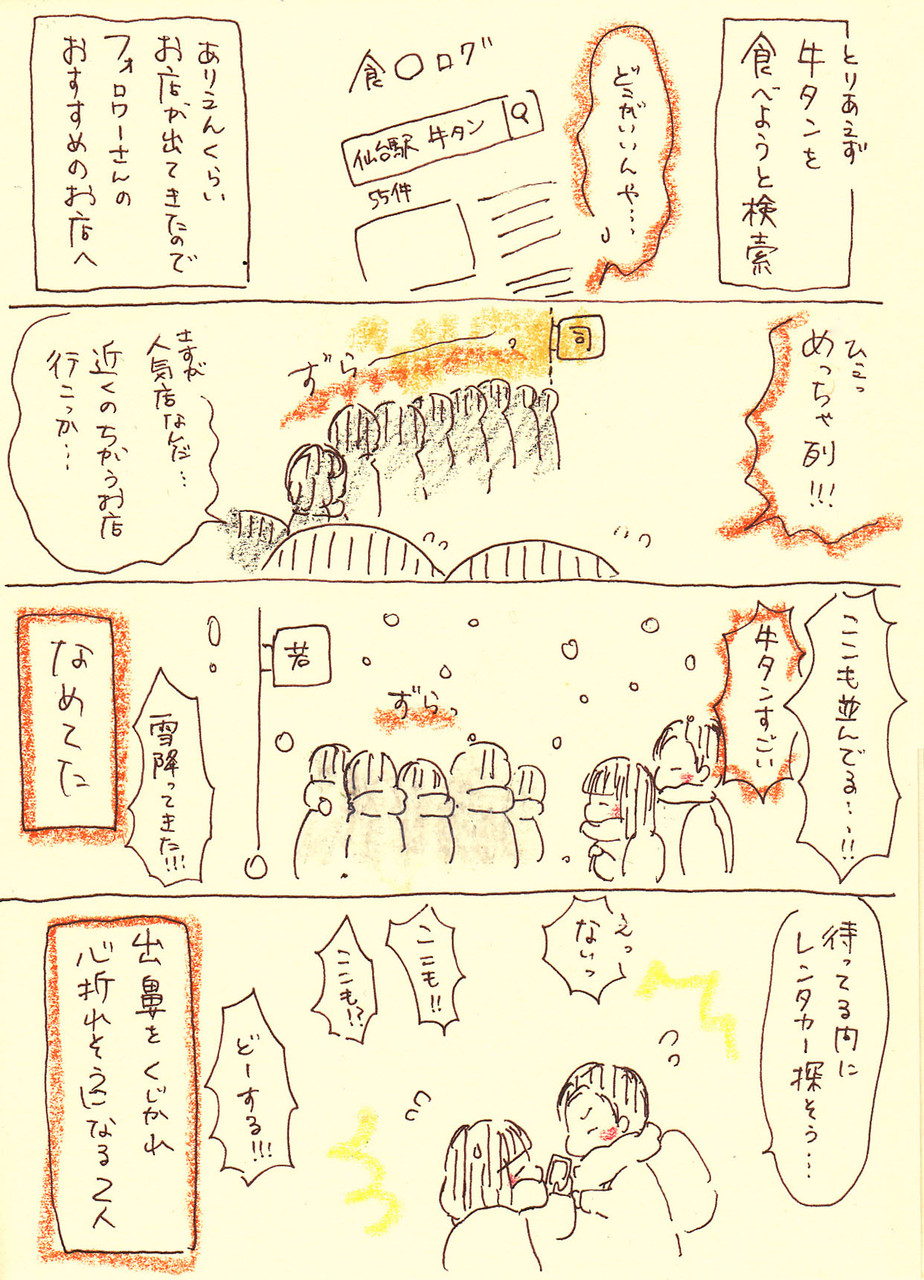 とりあえず
牛タンを
食べようと検索
どこがいいんや…
食〇ログ
仙台駅 牛タン
55件
ありえんくらい
お店が出てきたので
フォロワーさんの
おすすめのお店へ
ひぇっ
めっちゃ列!!!
司
ずらーっ
さすが
人気店なんだ…
近くのちがうお店
行こっか…
ここも並んでる…!!
牛タンすごい
ずらっ
若
雪降ってきた!!!
なめてた
待ってる内に
レンタカー探そう…
えっ
ないっ
ここも!!
ここも!?
どーする!!!
出鼻をくじかれ
心折れそうになる2人